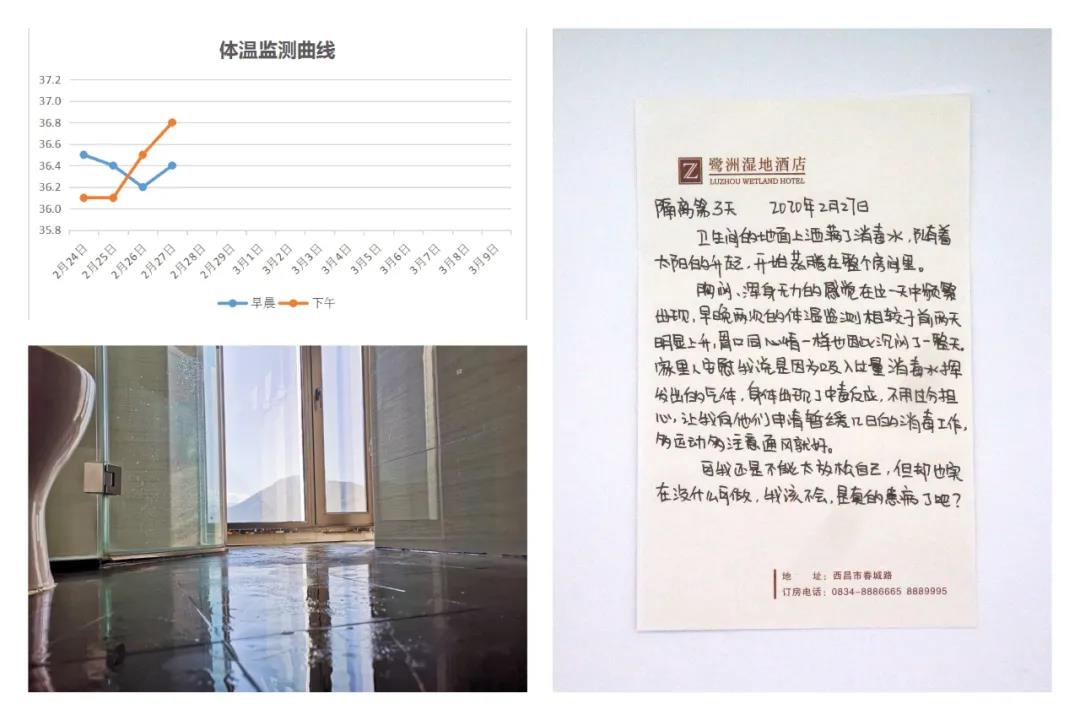 体温监测曲线
37.2
37.0
36.8
36.6
36.4
36.2
36.0
35.8
2月24日
2月25日
2月26日
2月27日
2月28日
2月29日
3月1日
3月2日
3月3日
3月4日
3月5日
3月6日
3月7日
3月8日
3月9日
早晨 下午
Z 鹭洲湿地酒店
LUZHOU WETLAND HOTEL
隔离第3天 2020年2月27日
卫生间的地面上洒满了消毒水，随着
太阳的升起，开始蒸腾在整个房间里。
胸闷、浑身无力的感觉在这一天中频繁
出现，早晚两次的体温监测相较于前两天
明显上升，胃口同心情一样也因此沉闷了一整天。
家里人安慰我说是因为吸入过量消毒水挥
发出的气体，身体出现了中毒反应，不用过分担
心，让我向他们申请暂缓几日的消毒工作，
多运动多注意通风就好。
可我还是不能太放松自己，但却也实
在没什么可做，我该不会，是真的患病了吧？
地 址：西昌市春城路
订房电话：0834-8886665 8889995